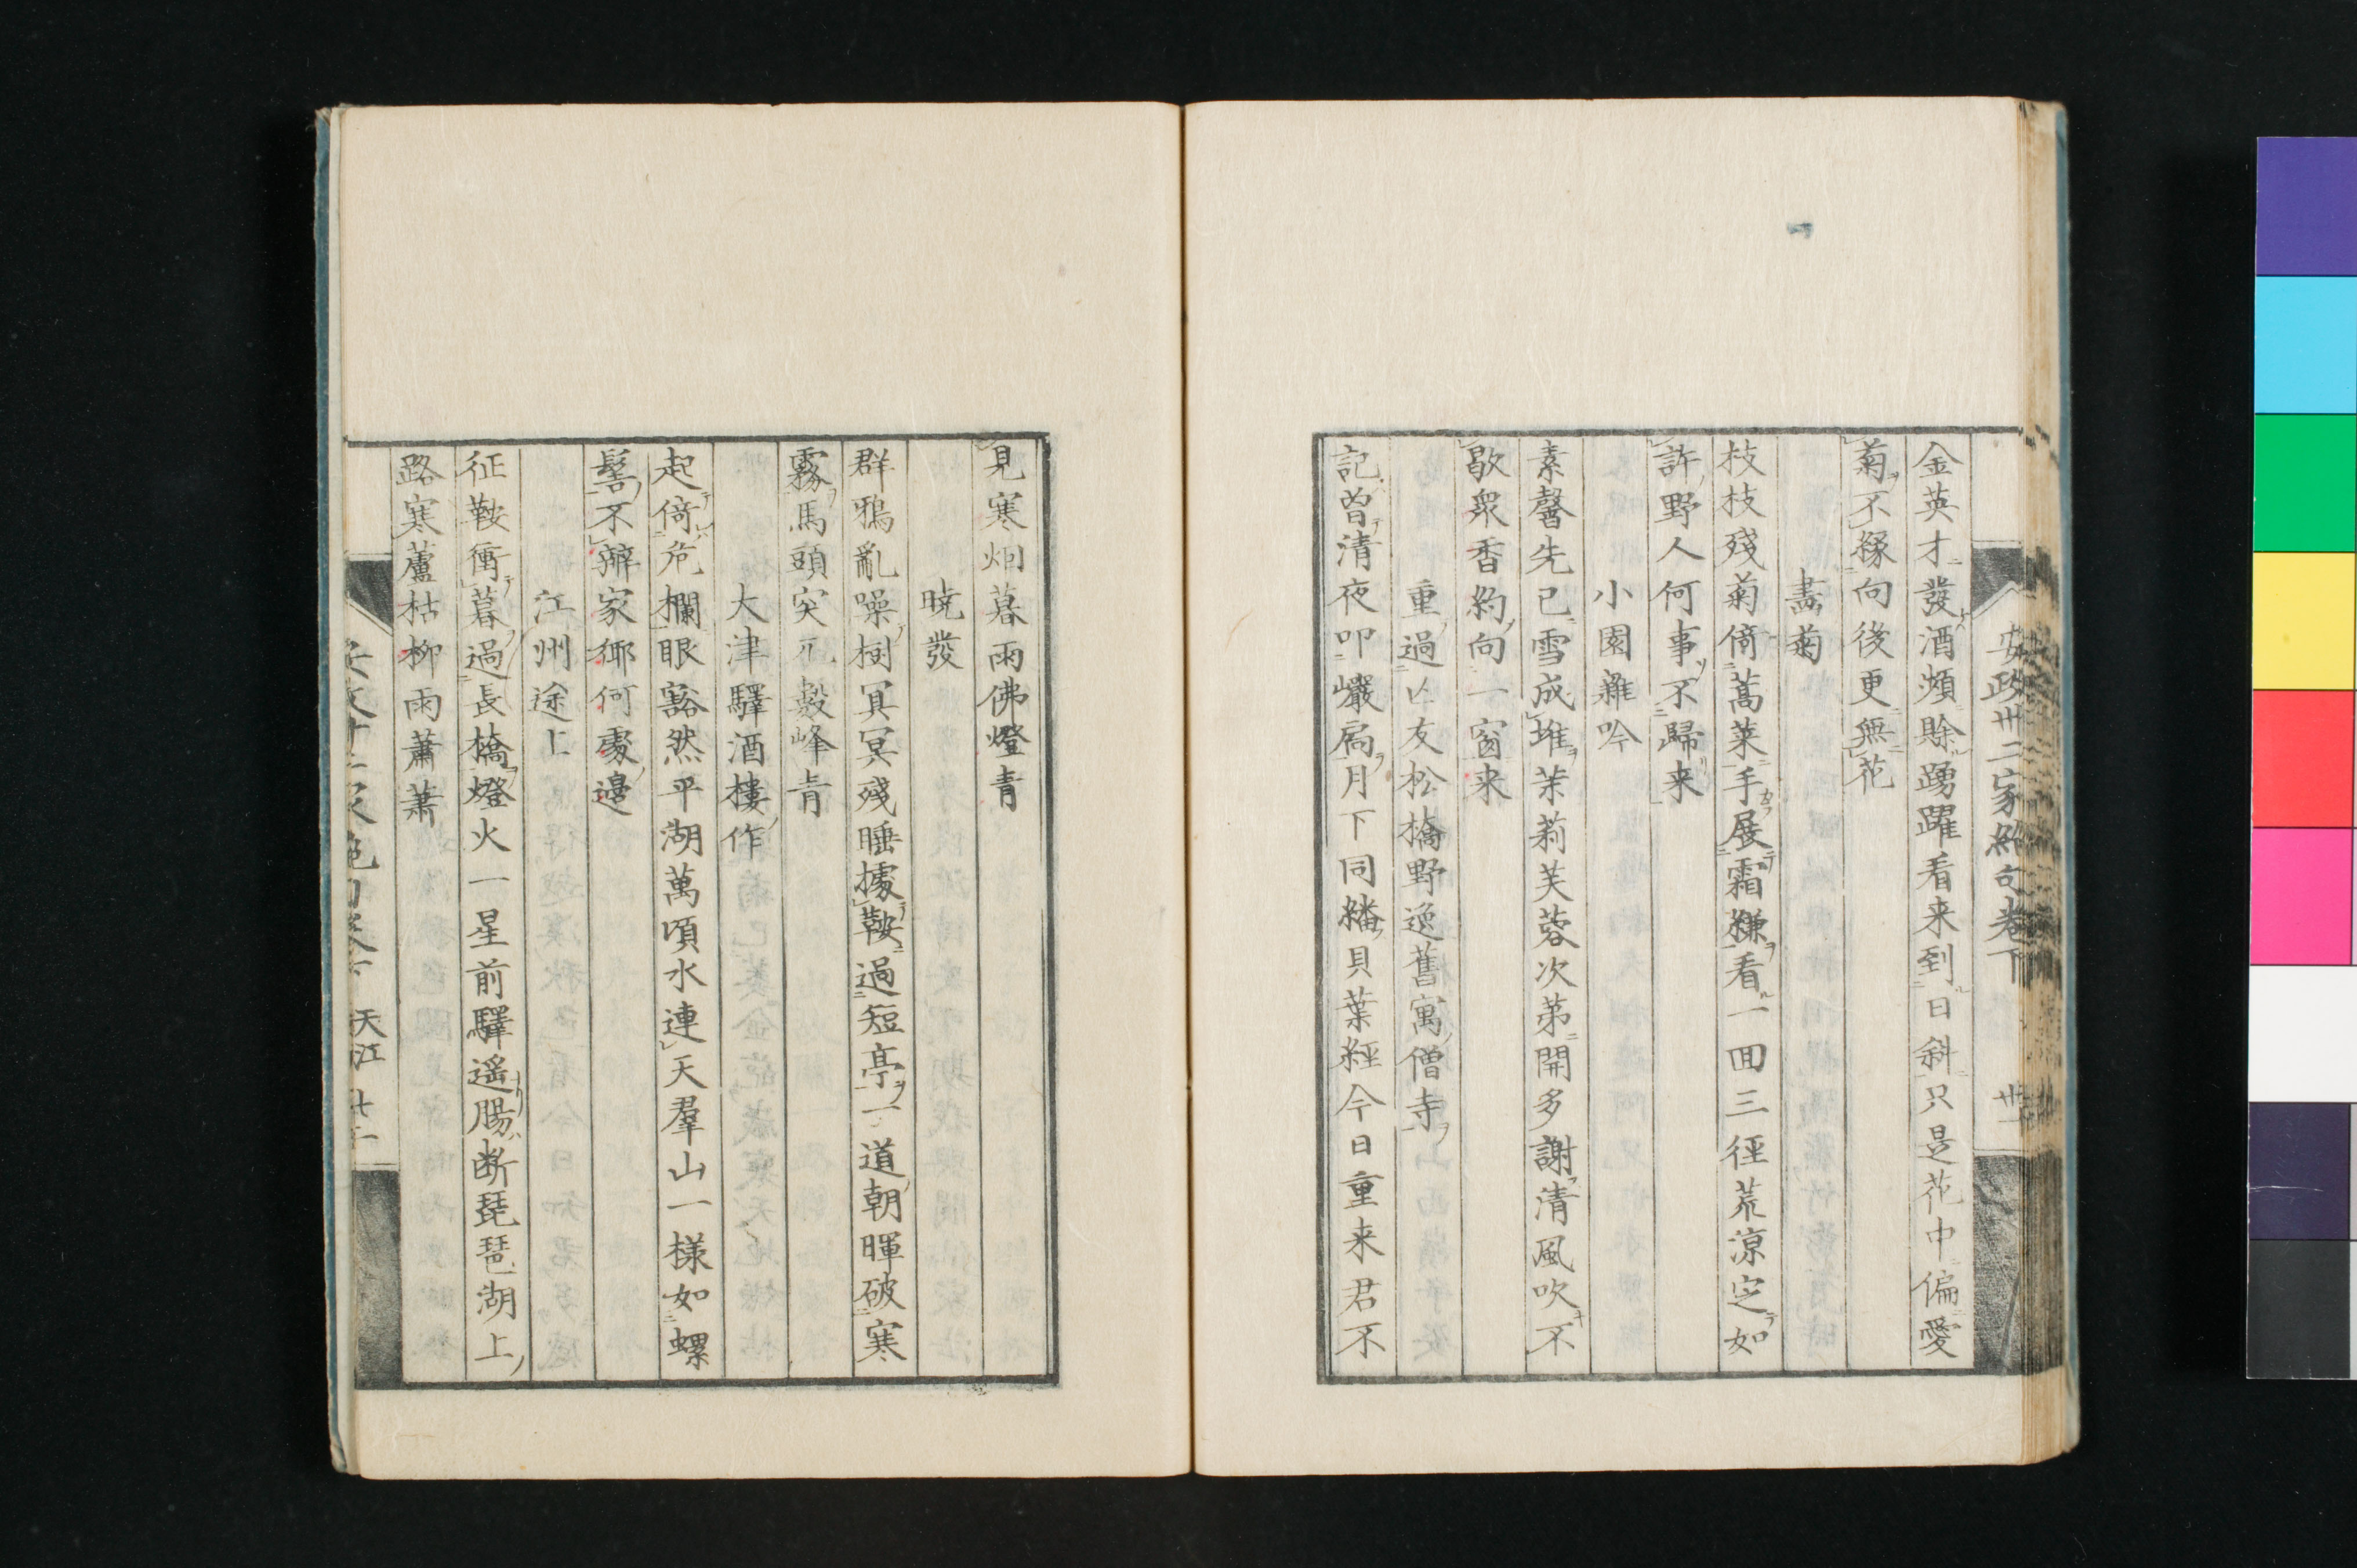 安政卅二家絶句卷下
卅一
金英才發酒頻賒踴躍看来到日斜只是花中偏愛
菊不緣向後更無花
畵菊
枝枝殘菊倚蒿萊手展霜縑看一回三徑荒凉定如
許野人何事不歸来
小園雜吟
素馨先已雪成堆茉莉芙蓉次第開多謝清風吹不
歇衆香約向一窗来
重過亡友松擕野逸舊寓僧寺
記曽清夜叩巖扃月下同繙貝葉經今日重来君不
見寒烟暮雨佛燈青
暁發
群鴉亂噪樹冥冥殘睡據鞍過短亭一道朝暉破寒
霧馬頭突兀數峰青
大津驛酒樓作
起倚危欄眼豁然平湖萬頃水連天羣山一様如螺
髻不辨家鄉何處邊
江州途上
征鞍衝暮過長橋燈火一星前驛遥腸断琵琶湖上
路寒蘆枯柳雨蕭蕭
天江